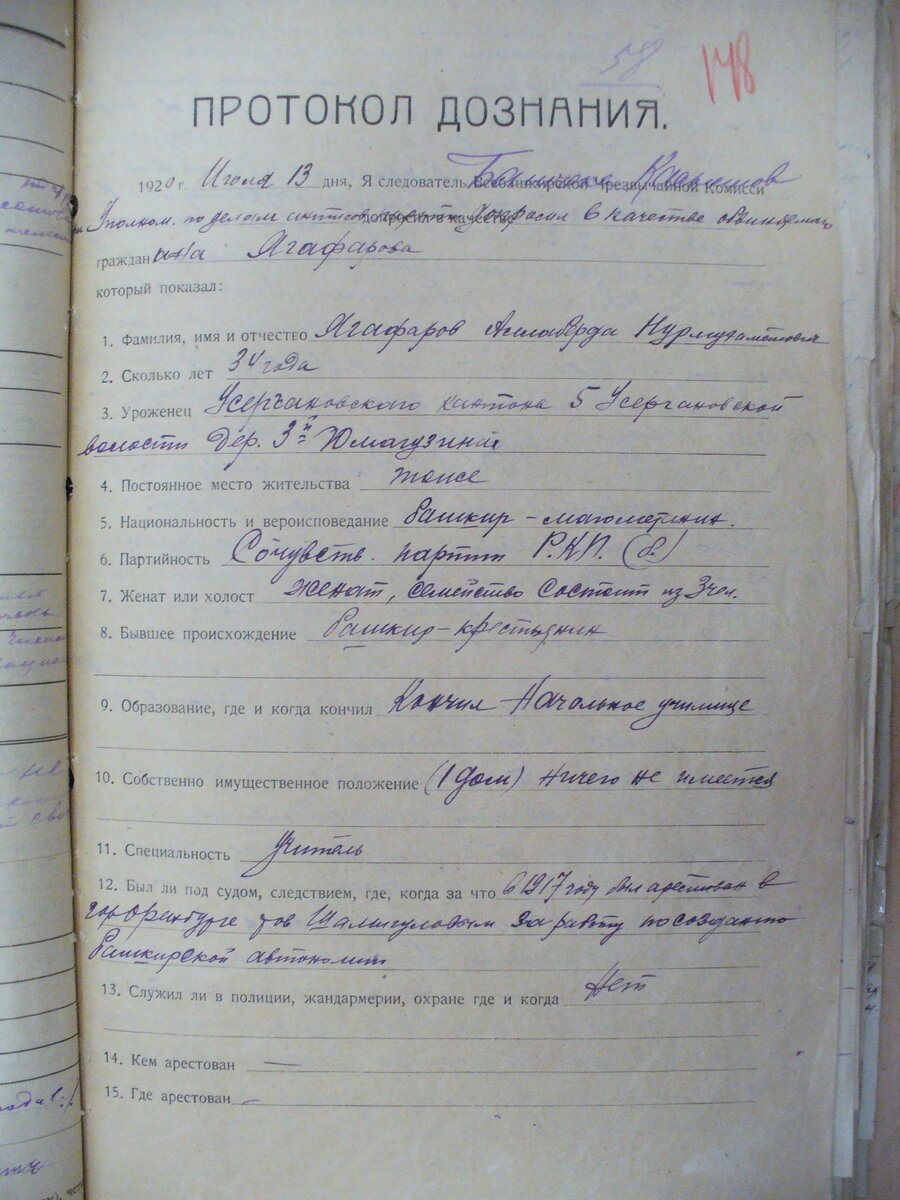 58
178
ПРОТОКОЛ ДОЗНАНИЯ.
1920 г. Июля 13 дня, Я следователь Всебашкирской Чрезвычайной Комиссии
Уполком. по делам допросил в качестве обвиняемаго
гражданина Ягафарова
который показал:
1. Фамилия, имя и отчество Ягафаров Аллаберда Нурмухаметович
2. Сколько лет 34 года
3. Уроженец Усерганского кантона 5 Усергановской
волости Дер. 3й Юмагузиной
4. Постоянное место жительства тоже
5. Национальность и вероисповедание башкир - магометанин.
6. Партийность Сочувств. партии Р.К.П. (б)
7. Женат или холост женат, семейство состоит из 3 чел.
8. Бывшее происхождение башкир-крестьянин
9. Образование, где и когда кончил Кончил Начальное училище
10. Собственно имущественное положение (1 дом) ничего не имеется
11. Специальность учитель
12. Был ли под судом, следствием, где, когда за что в 1917 году был арестован в
гор Оренбурге тов Шамигуловым за работу по созданию
Башкирской автономии
13. Служил ли в полиции, жандармерии, охране где и когда Нет
14. Кем арестован —
15. Где арестован –